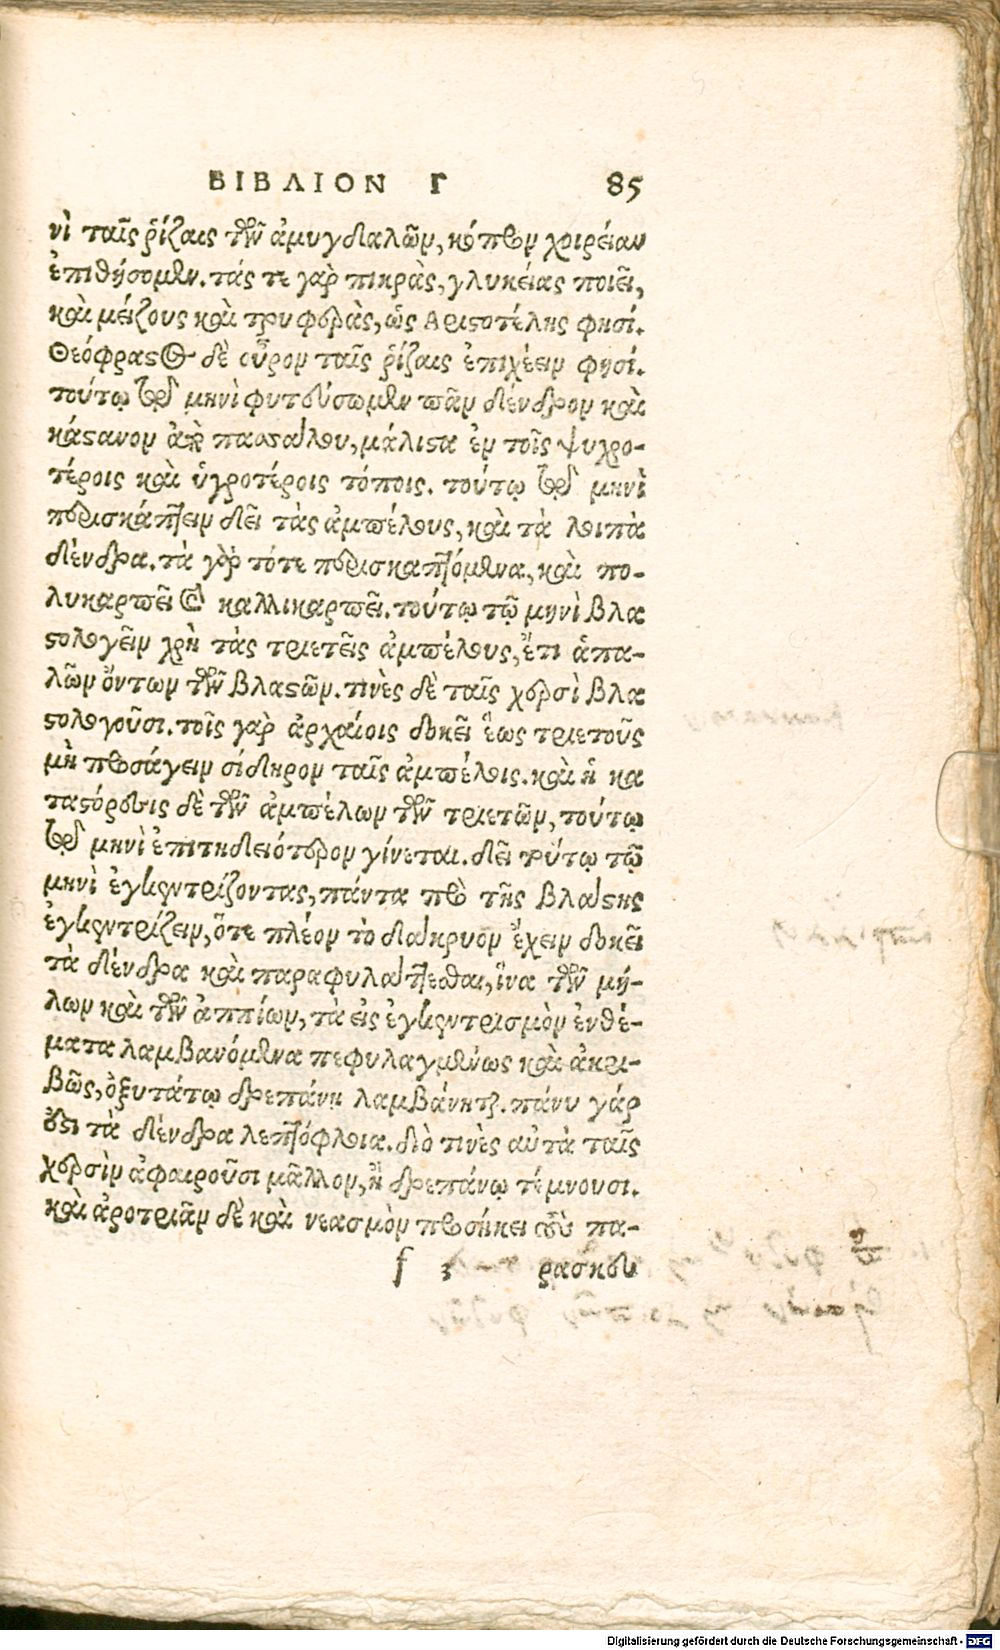 ΒΙΒΛΙΟΝ Γ 85
νὶ ταῖς ῥίζαις τῶν ἀμυγδαλῶν, κόπρον χοιρείαν
ἐπιθήσομεν. τάς τε γὰρ πικρὰς, γλυκείας ποιεῖ,
καὶ μείζους καὶ τρυφερὰς, ὡς Αριστοτέλης φησί.
Θεόφραστος δὲ οὖρον ταῖς ῥίζαις ἐπιχέειν φησί.
τούτῳ τῷ μηνὶ φυτεύσωμεν πᾶν δένδρον καὶ
κάστανον ἀπὸ πασσάλου, μάλιστα ἐν τοῖς ψυχρο-
τέροις καὶ ὑγροτέροις τόποις. τούτῳ τῷ μηνὶ
περισκάπτειν δεῖ τὰς ἀμπέλους, καὶ τὰ λοιπὰ
δένδρα. τὰ γὰρ τότε περισκαπτόμενα, καὶ πο-
λυκαρπεῖ καὶ καλλικαρπεῖ. τούτῳ τῷ μηνὶ βλα
στολογεῖν χρὴ τὰς τριετεῖς ἀμπέλους, ἔτι ἁπα-
λῶν ὄντων τῶν βλαστῶν. τινὲς δὲ ταῖς χερσὶ βλα
στολογοῦσι. τοῖς γὰρ ἀρχαίοις δοκεῖ ἕως τριετοῦς
μὴ προσάγειν σίδηρον ταῖς ἀμπέλοις. καὶ ἡ κα
ταστόρεσις δὲ τῶν ἀμπέλων τῶν τριετῶν, τούτῳ
τῷ μηνὶ ἐπιτηδειότερον γίνεται. δεῖ τούτῳ τῷ
μηνὶ ἐγκεντρίζοντας, πάντα πρὸ τῆς βλάστης
ἐγκεντρίζειν, ὅτε πλέον τὸ δάκρυον ἔχειν δοκεῖ
τὰ δένδρα καὶ παραφυλάττεσθαι, ἵνα τῶν μή-
λων καὶ τῶν ἀππίων, τὰ εἰς ἐγκεντρισμὸν ἐνθέ-
ματα λαμβανόμενα πεφυλαγμένως καὶ ἀκρι-
βῶς, ὀξυτάτῳ δρεπάνῃ λαμβάνηται. πάνυ γάρ
ἐστι τὰ δένδρα λεπτόφλοια. διὸ τινὲς αὐτὰ ταῖς
χερσὶν ἀφαιροῦσι μᾶλλον, ἢ δρεπάνῳ τέμνουσι.
καὶ ἀροτριᾶν δὲ καὶ νεασμὸν προσήκει οὐ πα-
f 3 ρασκευ
Digitalisierung gefördert durch die Deutsche Forschungsgemeinschaft - DFG